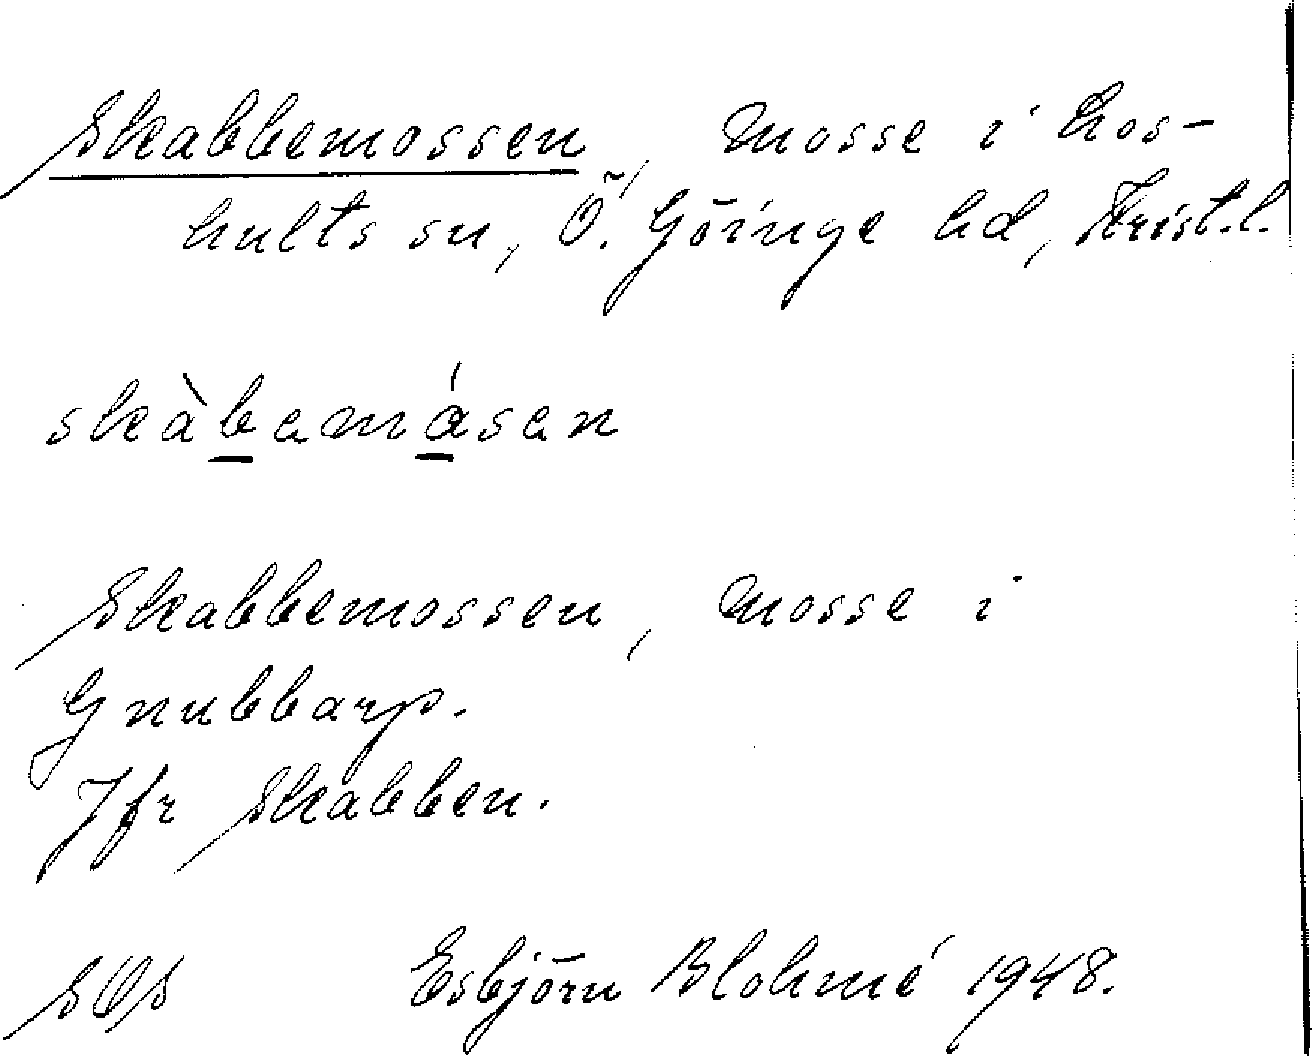 Skabbemossen, mosse i Los-
hults sn, Ö. Göinge hd, Krist.l.
skàb̲amá̲san
Skabbemossen, mosse i
Gnubbarp.
Jfr Skabben.
Esbjörn Blohmé 1948.